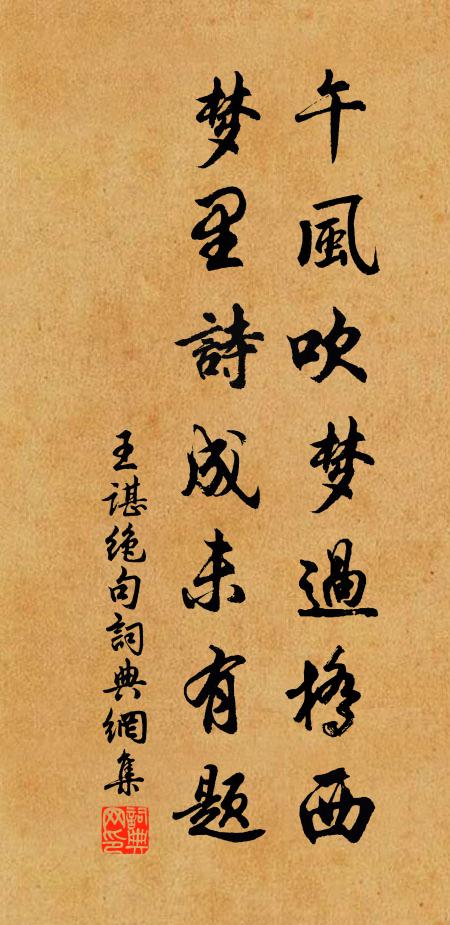 午風吹梦過橋西
梦里詩成未有题
王谌绝句詞典網集
詞典网印